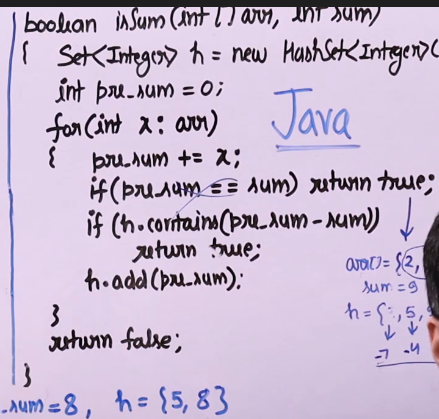 boolean isSum(int [] arr, int sum)
{ Set<Integer> h = new HashSet<Integer>(
int pre_sum = 0;
for(int x: arr)
Java
{ pre_sum += x;
if(pre_sum == sum) return true;
if (h.contains(pre_sum - sum))
return true;
arr[] = {2,
h.add(pre_sum);
sum = 9
h = { , 5,
}
-7 -4
return false;
}
_sum = 8, h = {5, 8}